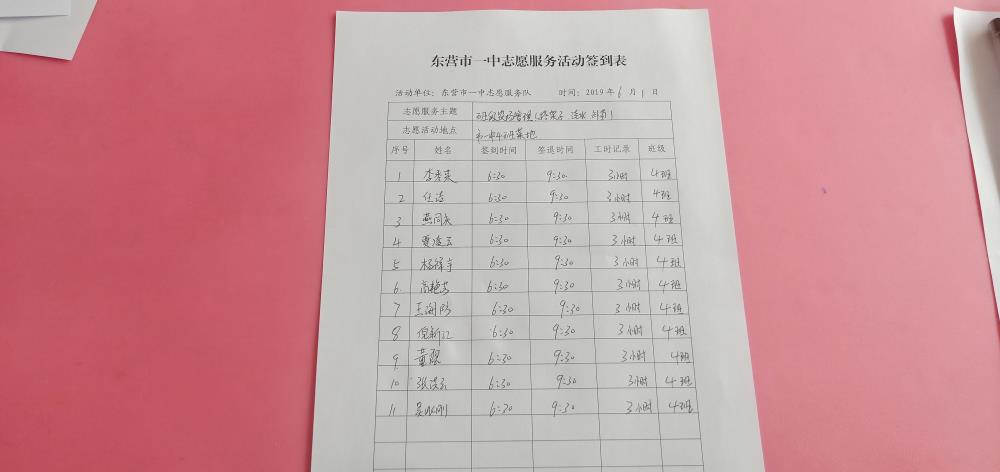 东营市一中志愿服务活动签到表
活动单位：东营市一中志愿服务队 时间：2019 年 6 月 1 日
志愿服务主题 班级菜园管理（搭架子 浇水
志愿活动地点 市一中4班菜地
序号 姓名 签到时间 签退时间 工时记录 班级
1 李秀英 6:30 9:30 3小时 4班
2 任涛 6:30 9:30 3小时 4班
3 燕同 6:30 9:30 3小时 4班
4 贾凌云 6:30 9:30 3小时 4班
5 杨 6:30 9:30 3小时 4班
6 6:30 9:30 3小时 4班
7 王海 6:30 9:30 3小时 4班
8 倪新江 6:30 9:30 3小时 4班
9 董 6:30 9:30 3小时 4班
10 张 6:30 9:30 3小时 4班
11 吴 刚 6:30 9:30 3小时 4班